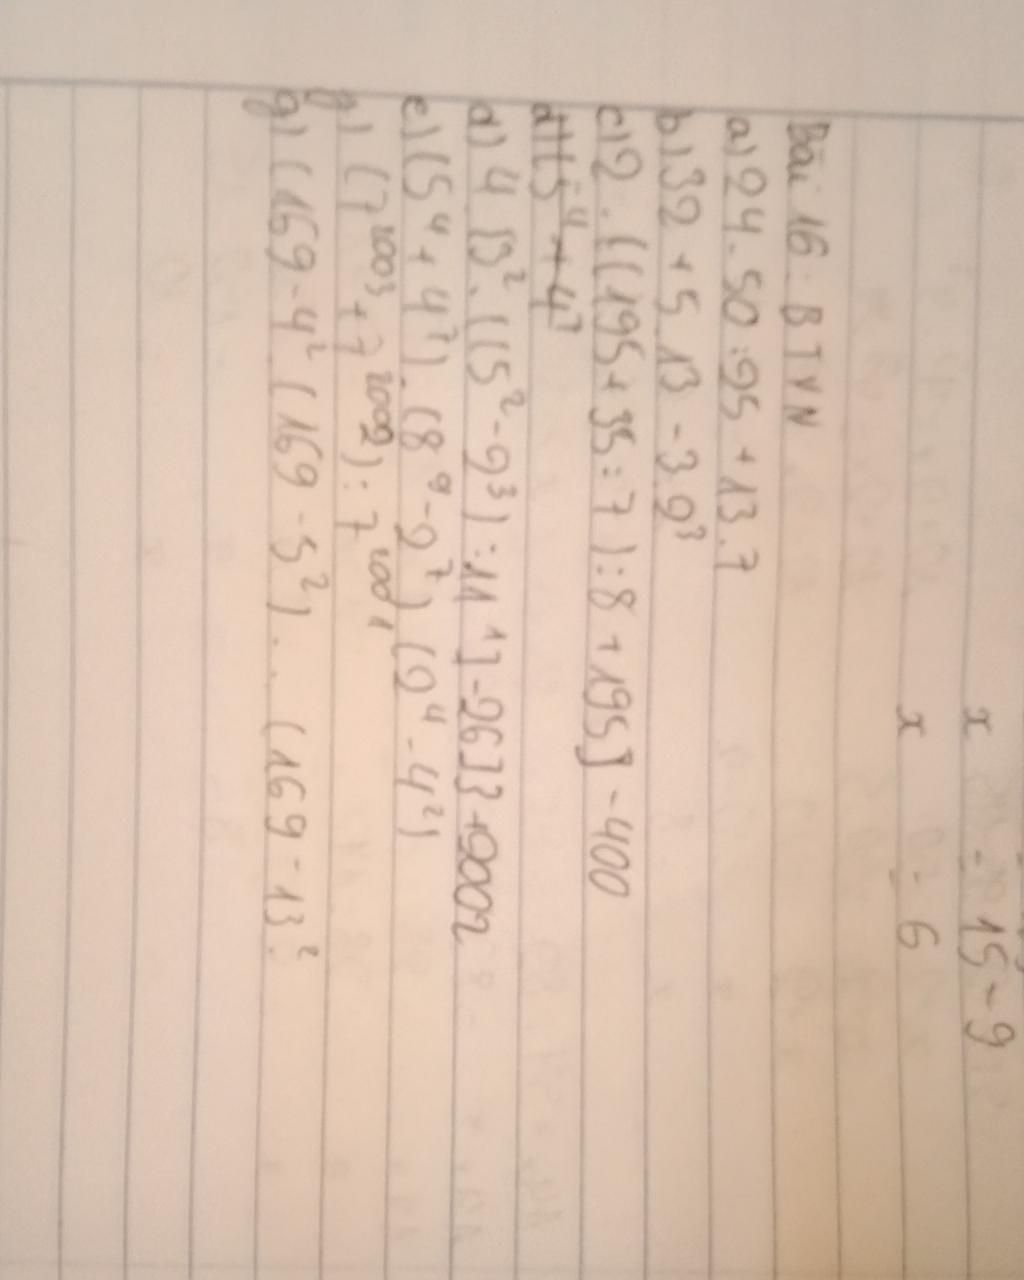 x = 15 - 9
x = 6
Bài 16. BTVN
a) 24. 50 : 25 + 13. 7
b) 32 + 5. 13 - 3. 2³
c) 2. ((195 + 35 : 7) : 8 + 195] - 400
d) (5⁴ + 4⁷
d) 4 [3². ((5² - 2³) : 11 ] - 26]} + 2002
e) (5⁴ + 4⁷). (8⁹ - 2⁷) (2⁴ - 4²)
g) (7²⁰⁰³ + 7²⁰⁰²) : 7²⁰⁰¹
g) (169 - 4² (169 - 5²) . . . (169 - 13²